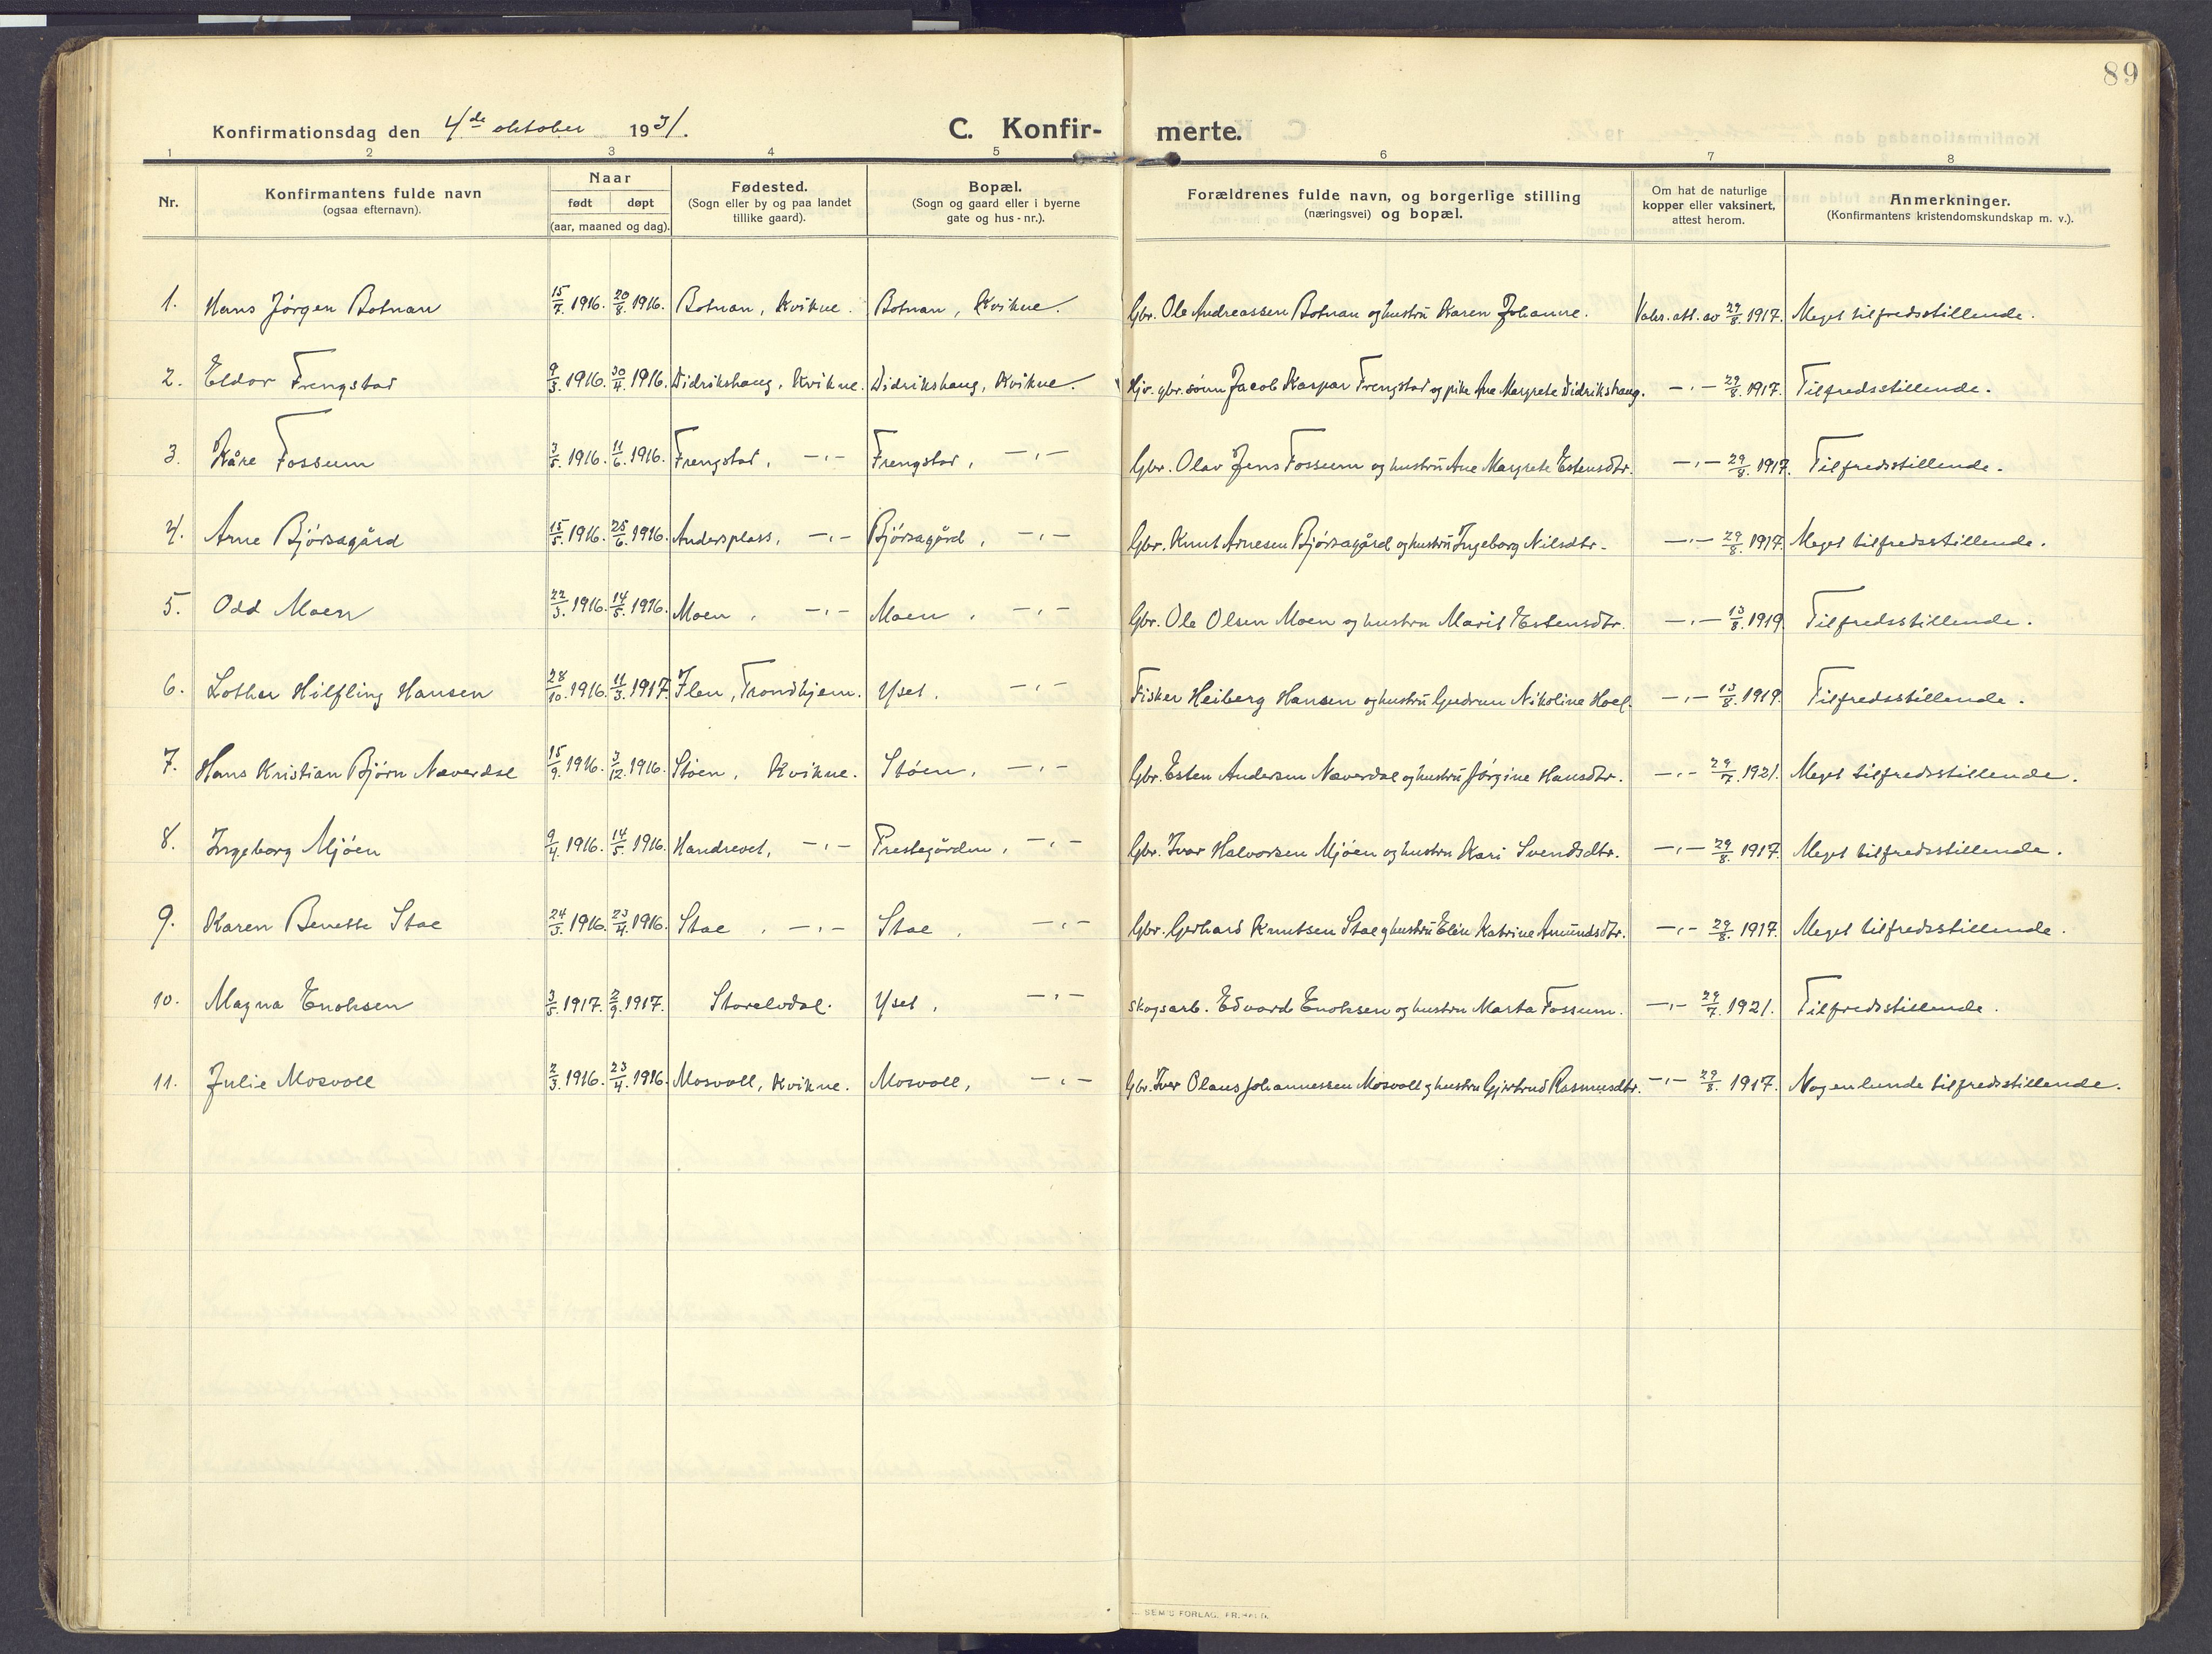 89
Konfirmationsdag den 4de oktober 1931. C. Konfirmerte.
1 2 3 4 5 6 7 8
Nr. Konfirmantens fulde navn (ogsaa efternavn). Naar født døpt (aar, maaned og dag). Fødested. (Sogn eller by og paa landet tillike gaard). Bopæl. (Sogn og gaard eller i byerne gate og hus-nr.). Forældrenes fulde navn, og borgerlige stilling (næringsvei) og bopæl. Om hat de naturlige kopper eller vaksinert, attest herom. Anmerkninger. (Konfirmantens kristendomskundskap m. v.).
1. Hans Jörgen Botnan 15/7. 1916. 20/8. 1916. Botnan, Kvikne. Botnan, Kvikne. Gbr. Ole Andreassen Botnan og hustru Karen Johanne. Vaks. att. av 29/8. 1917. Meget tilfredsstillende.
2. Eldor Frengstad 9/3. 1916. 30/4. 1916. Didrikshaug, Kvikne. Didrikshaug, Kvikne. Hjv. gbr. sönn Jacob Kaspar Frengstad og pike Ane Margrete Didrikshaug. —〃— 29/8. 1917. Tilfredsstillende.
3. Kåre Fossum 3/5. 1916. 11/6. 1916. Frengstad, —〃— Frengstad, —〃— Gbr. Olav Jens Fossum og hustru Ane Margrete Estensdtr. —〃— 29/8. 1917. Tilfredsstillende.
4. Arne Bjórsagård 15/5. 1916. 25/6. 1916. Andersplass, —〃— Bjórsagård, —〃— Gbr. Knut Arnesen Bjórsagård og hustru Ingeborg Nilsdtr. —〃— 29/8. 1917. Meget tilfredsstillende.
5. Odd Moen 22/3. 1916. 14/5. 1916. Moen, —〃— Moen, —〃— Gbr. Ole Olsen Moen og hustru Marit Estensdtr. —〃— 13/8. 1919. Tilfredsstillende.
6. Lothar Hilfling Hansen 28/10. 1916. 11/3. 1917. Ilen, Trondhjem. Yset. —〃— Fisker Heiberg Hansen og hustru Gudrun Nikoline Hoel. —〃— 13/8. 1919. Tilfredsstillende.
7. Hans Kristian Bjórn Næverdal 15/9. 1916. 3/12. 1916. Stóen, Kvikne. Stóen, —〃— Gbr. Esten Andersen Næverdal og hustru Jórgine Hansdtr. —〃— 29/7. 1921. Meget tilfredsstillende.
8. Ingeborg Mjóen 9/4. 1916. 14/5. 1916. Handrevet, —〃— Prestegården, —〃— Gbr. Ivar Halvorsen Mjóen og hustru Kari Svendsdtr. —〃— 29/8. 1917. Meget tilfredsstillende.
9. Karen Benette Stae 24/3. 1916. 23/4. 1916. Stae, —〃— Stae, —〃— Gbr. Gerhard Knutsen Stae og hustru Elen Katrine Amundsdtr. —〃— 29/8. 1917. Meget tilfredsstillende.
10. Magna Enoksen 3/5. 1917. 2/9. 1917. Storelvdal. Yset, —〃— Skogsarb. Edvard Enoksen og hustru Marta Fossum. —〃— 29/7. 1921. Tilfredsstillende.
11. Julie Mosvoll 2/3. 1916. 23/4. 1916. Mosvoll, Kvikne. Mosvoll, —〃— Gbr. Iver Olaus Johannessen Mosvoll og hustru Gjertrud Rasmusdtr. —〃— 29/8. 1917. Nogenlunde tilfredsstillende.
SEM'S FORLAG, FR.HALD.